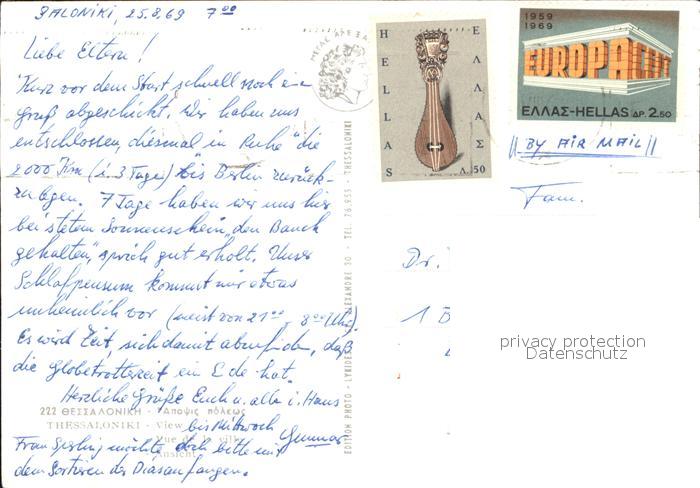 SALONIKI, 25.8.69 7⁰⁰
Liebe Eltern!
Kurz vor dem Start schnell noch ein
Gruß abgeschickt. Wir haben uns
entschlossen, diesmal in Ruhe die
2000 Km (i. 3 Tagen) bis Berlin zurück-
zulegen. 7 Tage haben wir uns hier
bei stetem Sonnenschein „den Bauch
gehalten“, sprich gut erholt. Unser
Schlafpensum kommt mir etwas
unheimlich vor (meist von 21⁰⁰ - 8⁰⁰ Uhr).
Es wird Zeit, sich damit abzufinden, daß
die Globetrotterzeit ein Ende hat.
Herzliche Grüße Euch u. allen i. Haus
bis Mittwoch
Gunnar
Frau Sperling möchte doch bitte mit
dem Sortieren der Dias anfangen.
222 ΘΕΣΣΑΛΟΝΙΚΗ - Ἄποψις πόλεως
THESSALONIKI - View
Vue de la ville
Ansicht
EDITION PHOTO - ALEXANDRE 30 - TEL. 76.955 - THESSALONIKI
ΜΕΓΑΣ ΑΛΕΞΑ
HELLAS
ΕΛΛΑΣ
Λ. 50
1959
1969
EUROPA
ΕΛΛΑΣ-HELLAS ΔΡ. 2.50
BY AIR MAIL
Fam.
Dr.
1 B
privacy protection
Datenschutz